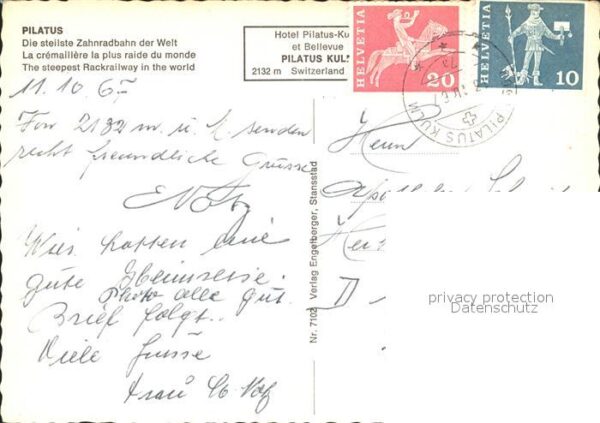 PILATUS
Die steilste Zahnradbahn der Welt
La crémaillère la plus raide du monde
The steepest Rackrailway in the world
Hotel Pilatus-Ku
et Bellevue
PILATUS KUL
2132 m Switzerland
HELVETIA
20
HELVETIA
10
PILATUS KULM
11.10.67
Von 2132 m.ü.M. senden
recht freundliche Grüsse
Wir hatten eine
gute Heimreise.
Photo alle gut.
Brief folgt..
Viele Grüsse
Frau
Herrn
D
Nr. 7102 Verlag Engelberger, Stansstad
privacy protection
Datenschutz